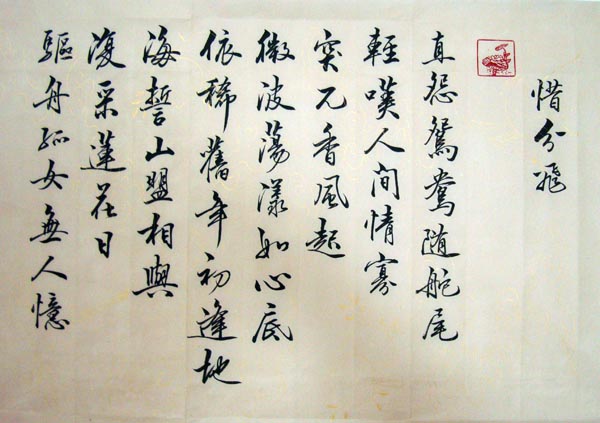 惜分飛
真怨鴛鴦隨舵尾
輕嘆人間情寡
突兀香風起
微波蕩漾如心底
依稀舊年初逢地
海誓山盟相與
復采蓮花日
驅舟孤女無人憶